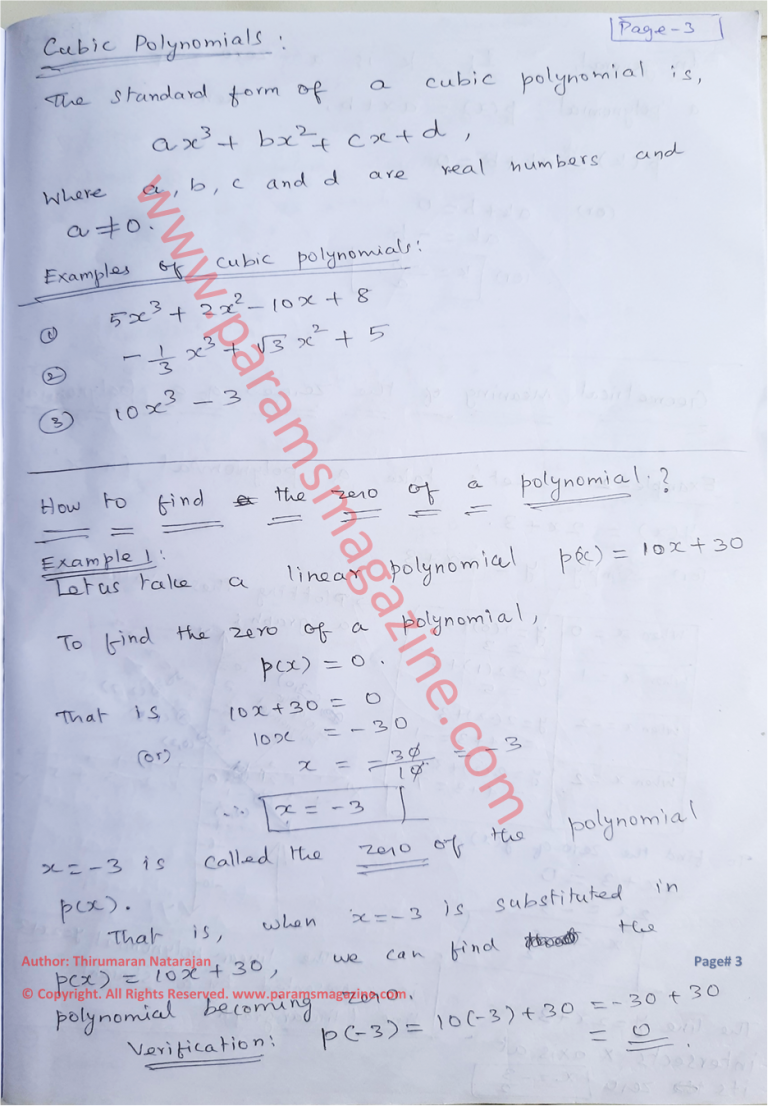 Page-3
Cubic Polynomials:
The standard form of a cubic polynomial is,
ax³ + bx² + cx + d,
Where a, b, c and d are real numbers and
a ≠ 0.
Examples of cubic polynomials:
① 5x³ + 2x² - 10x + 8
② -1/3 x³ + √3 x² + 5
③ 10x³ - 3
How to find the zero of a polynomial?
Example 1:
Let us take a linear polynomial p(x) = 10x + 30
To find the zero of a polynomial,
p(x) = 0.
That is 10x + 30 = 0
10x = -30
(or) x = -30/10 = -3
∴ x = -3
x = -3 is called the zero of the polynomial
p(x).
That is, when x = -3 is substituted in
p(x) = 10x + 30, we can find the
polynomial becoming zero.
Verification: p(-3) = 10(-3) + 30 = -30 + 30
= 0.
www.paramsmagazine.com
Author: Thirumaran Natarajan
Page# 3
© Copyright. All Rights Reserved. www.paramsmagazine.com